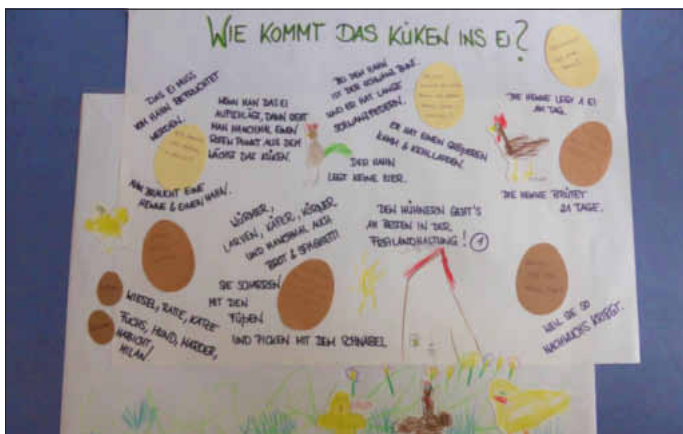 WIE KOMMT DAS KÜKEN INS EI?
DAS EI MUSS
VOM HAHN BEFRUCHTET
WERDEN.
WENN MAN DAS EI
AUFSCHLÄGT, DANN SIEHT
MAN MANCHMAL EINEN
ROTEN PUNKT AUS DEM
WÄCHST DAS KÜKEN.
BEI DEM HAHN
IST DER SCHWANZ BUNT
UND ER HAT LANGE
SCHWANZFEDERN.
ER HAT EINEN GRÖßEREN
KAMM & KEHLLAPPEN.
DER HAHN
LEGT KEINE EIER.
DIE HENNE LEGT 1 EI
AM TAG.
DIE HENNE BRÜTET
21 TAGE.
MAN BRAUCHT EINE
HENNE & EINEN HAHN.
WÜRMER,
LARVEN, KÄFER, KÖRNER
UND MANCHMAL AUCH
BROT & SPAGHETTI
DEN HÜHNERN GEHT'S
AM BESTEN IN DER
FREILANDHALTUNG!
SIE SCHARREN
MIT DEN
FÜßEN
UND PICKEN MIT DEM SCHNABEL
WIESEL, RATTE, KATZE
FUCHS, HUND, MARDER,
HABICHT,
MILAN!
WEIL SIE SO
NACHWUCHS KRIEGT.